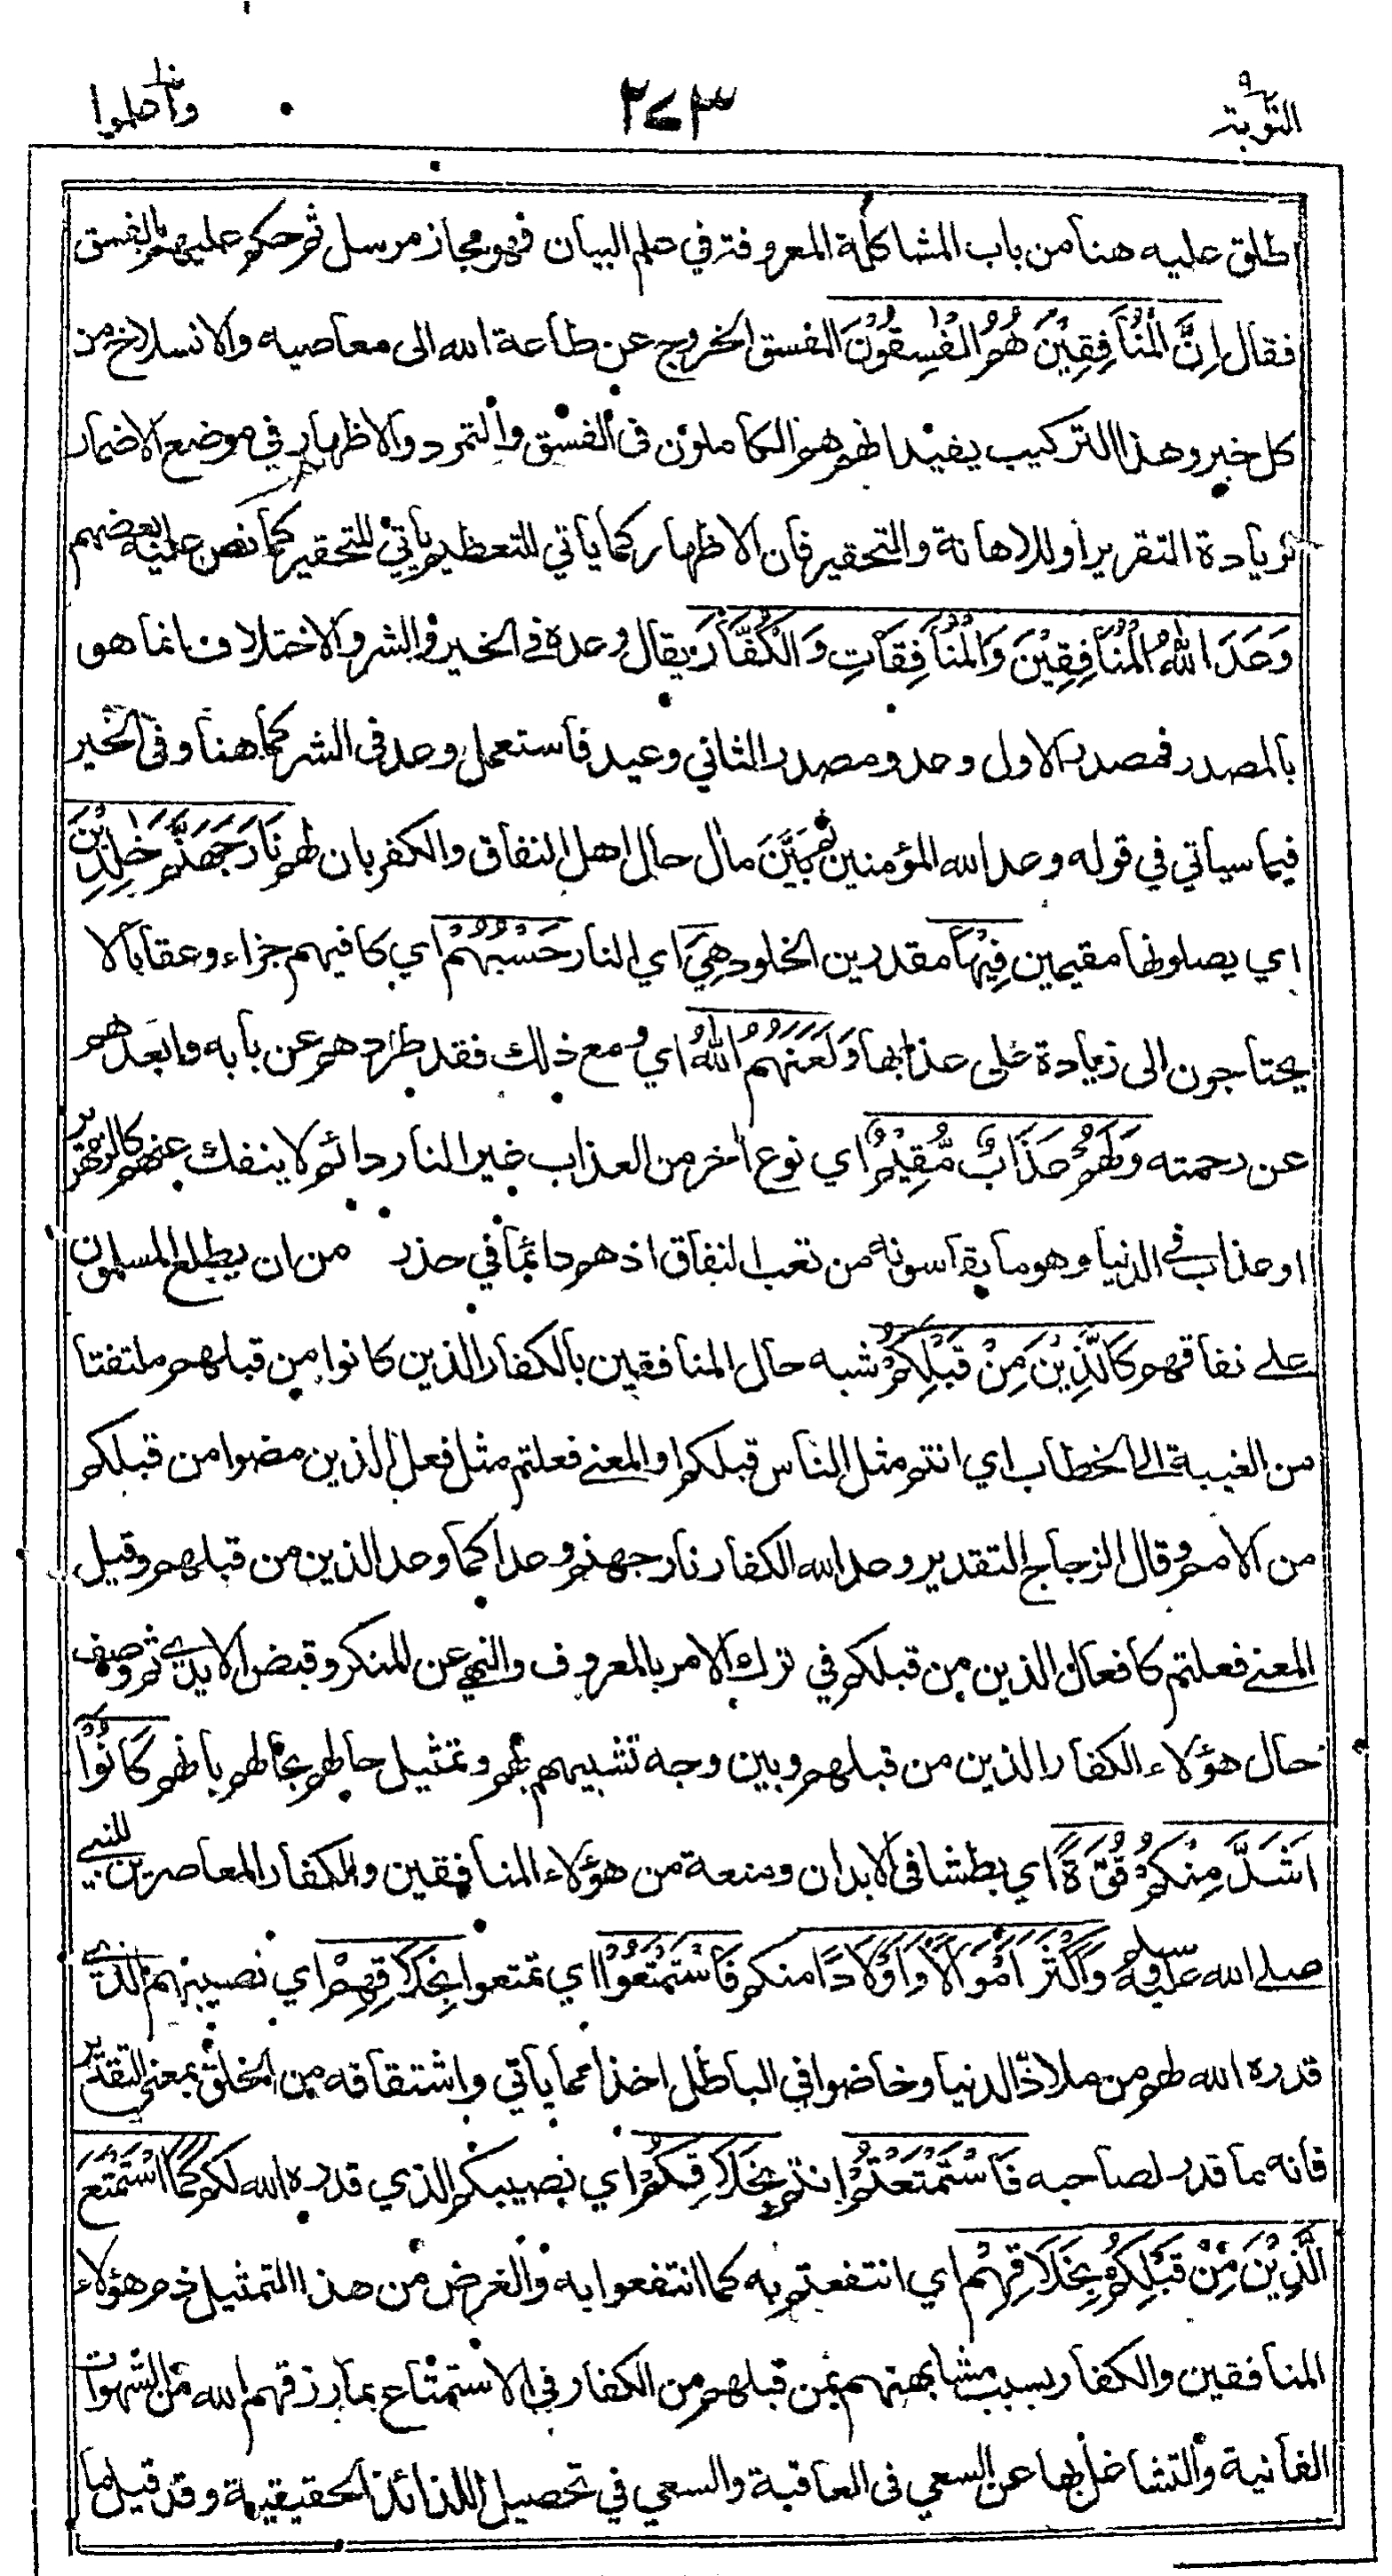 التوبة ٩
٢٧٣
واعلموا ١٠
اطلق عليه هنا من باب المشاكلة المعروفة في علم البيان فهو مجاز مرسل ثم حكم عليهم بالفسق
فقال اِنَّ الْمُنَافِقِيْنَ هُمُ الْفٰسِقُوْنَ الفسق الخروج عن طاعة الله الى معاصيه والانسلاخ من
كل خير وهذا التركيب يفيد انهم هم الكاملون في الفسق والتمرد والاظهار في موضع الاضمار
لزيادة التقرير او للاهانة والتحقير فان الاظهار كما يأتي للتعظيم يأتي للتحقير كما نص عليه بعضهم
وَعَدَ اللهُ الْمُنَافِقِيْنَ وَالْمُنَافِقَاتِ وَالْكُفَّارَ يقال وعده في الخير والشر والاختلاف انما هو
بالمصدر فمصدر الاول وعد ومصدر الثاني وعيد فاستعمل وعد في الشر كما هنا وفى الخير
فيما سيأتي في قوله وعد الله المؤمنين ثم بَيَّنَ مآل حال اهل النفاق والكفر بان لهم نَارَ جَهَنَّمَ خٰلِدِيْنَ
اي يصلونها مقيمين فِيْهَا مقدرين الخلود هِيَ اي النار حَسْبُهُمْ اي كافيهم جزاء وعقابا لا
يحتاجون الى زيادة على عذابها وَلَعَنَهُمُ اللهُ اي ومع ذلك فقد طردهم عن بابه وابعدهم
عن رحمته وَلَهُمْ عَذَابٌ مُّقِيْمٌ اي نوع آخر من العذاب غير النار دائم لا ينفك عنهم كالزمهرير
او عذاب في الدنيا وهو ما يقاسونه من تعب النفاق اذ هم دائما في حذر من ان يطلع المسلمون
على نفاقهم كَالَّذِيْنَ مِنْ قَبْلِكُمْ شبه حال المنافقين بالكفار الذين كانوا من قبلهم ملتفتا
من الغيبة الى الخطاب اي انتم مثل الناس قبلكم او المعنى فعلتم مثل فعل الذين مضوا من قبلكم
من الامم وقال الزجاج التقدير وعد الله الكفار نار جهنم وعدا كما وعد الذين من قبلهم وقيل
المعنى فعلتم كافعال الذين من قبلكم في ترك الامر بالمعروف والنهي عن المنكر وقبض الايدي ثم وصف
حال هؤلاء الكفار الذين من قبلهم وبين وجه تشبيههم بهم وتمثيل حالهم بحالهم بانهم كَانُوْا
اَشَدَّ مِنْكُمْ قُوَّةً اي بطشا في الابدان ومنعة من هؤلاء المنافقين والكفار المعاصرين للنبي
صلى الله عليه وسلم وَاَكْثَرَ اَمْوَالًا وَاَوْلَادًا منكم فَاسْتَمْتَعُوْا اي تمتعوا بِخَلَاقِهِمْ اي نصيبهم الذي
قدره الله لهم من ملاذّ الدنيا وخاضوا في الباطل اخذا مما يأتي واشتقاقه من الخلق بمعنى التقدير
فانه ما قدر لصاحبه فَاسْتَمْتَعْتُمْ انتم بِخَلَاقِكُمْ اي نصيبكم الذي قدره الله لكم كَمَا اسْتَمْتَعَ
الَّذِيْنَ مِنْ قَبْلِكُمْ بِخَلَاقِهِمْ اي انتفعتم به كما انتفعوا به والغرض من هذا التمثيل ذم هؤلاء
المنافقين والكفار بسبب مشابهتهم بمن قبلهم من الكفار في الاستمتاع بما رزقهم الله من الشهوات
الفانية والتشاغل بها عن السعي فى العاقبة والسعي في تحصيل اللذائذ الحقيقية وقد قيل ما